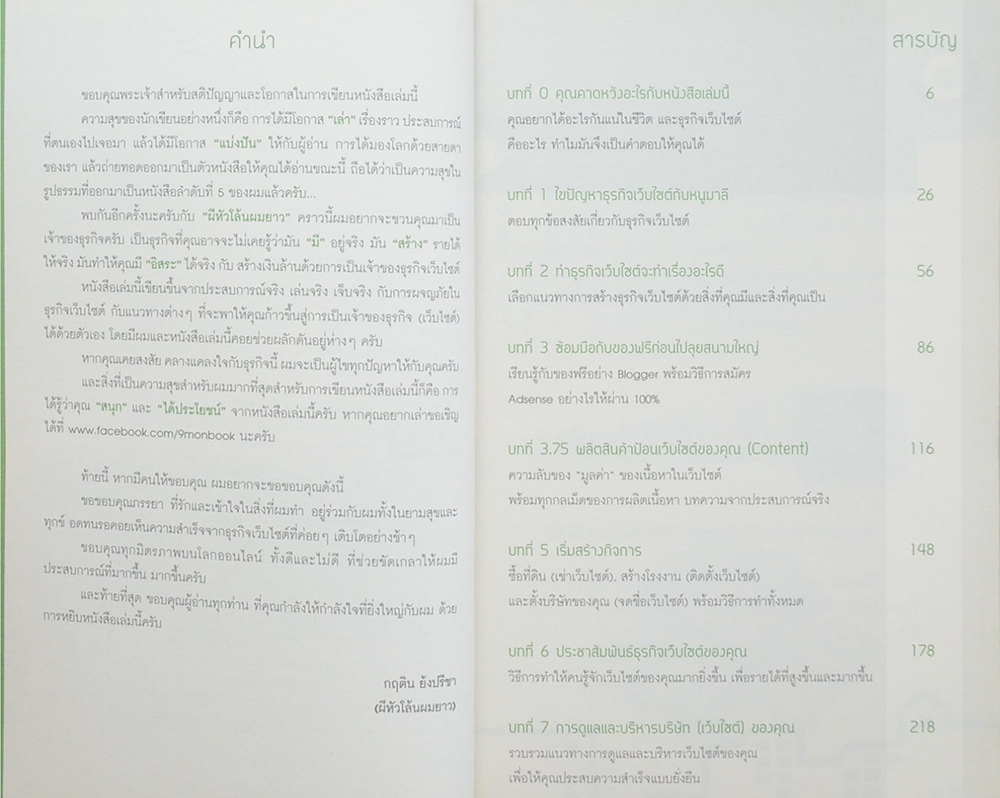 คำนำ
ขอบคุณพระเจ้าสำหรับสติปัญญาและโอกาสในการเขียนหนังสือเล่มนี้
ความสุขของนักเขียนอย่างหนึ่งก็คือ การได้มีโอกาส "เล่า" เรื่องราว ประสบการณ์
ที่ตนเองไปเจอมา แล้วได้มีโอกาส "แบ่งปัน" ให้กับผู้อ่าน การได้มองโลกด้วยสายตา
ของเรา แล้วถ่ายทอดออกมาเป็นตัวหนังสือให้คุณได้อ่านขณะนี้ ถือได้ว่าเป็นความสุขใน
รูปธรรมที่ออกมาเป็นหนังสือลำดับที่ 5 ของผมแล้วครับ...
พบกันอีกครั้งนะครับกับ "ผีหัวโล้นผมยาว" คราวนี้ผมอยากจะชวนคุณมาเป็น
เจ้าของธุรกิจครับ เป็นธุรกิจที่คุณอาจจะไม่เคยรู้ว่ามัน "มี" อยู่จริง มัน "สร้าง" รายได้
ให้จริง มันทำให้คุณมี "อิสระ" ได้จริง กับ สร้างเงินล้านด้วยการเป็นเจ้าของธุรกิจเว็บไซต์
หนังสือเล่มนี้เขียนขึ้นจากประสบการณ์จริง เล่นจริง เจ็บจริง กับการผจญภัยใน
ธุรกิจเว็บไซต์ กับแนวทางต่างๆ ที่จะพาให้คุณก้าวขึ้นสู่การเป็นเจ้าของธุรกิจ (เว็บไซต์)
ได้ด้วยตัวเอง โดยมีผมและหนังสือเล่มนี้คอยช่วยผลักดันอยู่ห่างๆ ครับ
หากคุณเคยสงสัย คลางแคลงใจกับธุรกิจนี้ ผมจะเป็นผู้ไขทุกปัญหาให้กับคุณครับ
และสิ่งที่เป็นความสุขสำหรับผมมากที่สุดสำหรับการเขียนหนังสือเล่มนี้ก็คือ การ
ได้รู้ว่าคุณ "สนุก" และ "ได้ประโยชน์" จากหนังสือเล่มนี้ครับ หากคุณอยากเล่าขอเชิญ
ได้ที่ www.facebook.com/9monbook นะครับ
ท้ายนี้ หากมีคนให้ขอบคุณ ผมอยากจะขอขอบคุณดังนี้
ขอขอบคุณภรรยา ที่รักและเข้าใจในสิ่งที่ผมทำ อยู่ร่วมกับผมทั้งในยามสุขและ
ทุกข์ อดทนรอคอยเห็นความสำเร็จจากธุรกิจเว็บไซต์ที่ค่อยๆ เติบโตอย่างช้าๆ
ขอบคุณทุกมิตรภาพบนโลกออนไลน์ ทั้งดีและไม่ดี ที่ช่วยขัดเกลาให้ผมมี
ประสบการณ์ที่มากขึ้น มากขึ้นครับ
และท้ายที่สุด ขอบคุณผู้อ่านทุกท่าน ที่คุณกำลังให้กำลังใจที่ยิ่งใหญ่กับผม ด้วย
การหยิบหนังสือเล่มนี้ครับ
กฤติน ยังปรีชา
(ผีหัวโล้นผมยาว)
สารบัญ
บทที่ 0 คุณคาดหวังอะไรกับหนังสือเล่มนี้ 6
คุณอยากได้อะไรกันแน่ในชีวิต และธุรกิจเว็บไซต์
คืออะไร ทำไมมันจึงเป็นคำตอบให้คุณได้
บทที่ 1 ไขปัญหาธุรกิจเว็บไซต์กับหนูมาลี 26
ตอบทุกข้อสงสัยเกี่ยวกับธุรกิจเว็บไซต์
บทที่ 2 ทำธุรกิจเว็บไซต์จะทำเรื่องอะไรดี 56
เลือกแนวทางการสร้างธุรกิจเว็บไซต์ด้วยสิ่งที่คุณมีและสิ่งที่คุณเป็น
บทที่ 3 ซ้อมมือกับของฟรีก่อนไปลุยสนามใหญ่ 86
เรียนรู้กับของฟรีอย่าง Blogger พร้อมวิธีการสมัคร
Adsense อย่างไรให้ผ่าน 100%
บทที่ 3.75 ผลิตสินค้าป้อนเว็บไซต์ของคุณ (Content) 116
ความลับของ "มูลค่า" ของเนื้อหาในเว็บไซต์
พร้อมทุกกลเม็ดของการผลิตเนื้อหา บทความจากประสบการณ์จริง
บทที่ 5 เริ่มสร้างกิจการ 148
ซื้อที่ดิน (เช่าเว็บไซต์), สร้างโรงงาน (ติดตั้งเว็บไซต์)
และตั้งบริษัทของคุณ (จดชื่อเว็บไซต์) พร้อมวิธีการทำทั้งหมด
บทที่ 6 ประชาสัมพันธ์ธุรกิจเว็บไซต์ของคุณ 178
วิธีการทำให้คนรู้จักเว็บไซต์ของคุณมากยิ่งขึ้น เพื่อรายได้ที่สูงขึ้นและมากขึ้น
บทที่ 7 การดูแลและบริหารบริษัท (เว็บไซต์) ของคุณ 218
รวบรวมแนวทางการดูแลและบริหารเว็บไซต์ของคุณ
เพื่อให้คุณประสบความสำเร็จแบบยั่งยืน